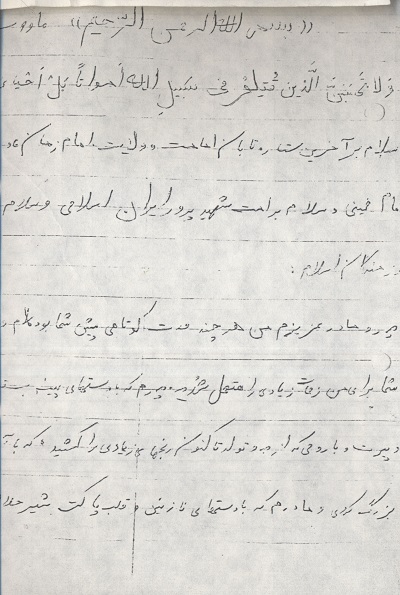 ((بسم الله الرحمن الرحیم))
وَلا تَحْسَبَنَّ الَّذینَ قُتِلوُ فی سَبیلِ اللهِ اَمواتاً بَل اَحیاء
سلام بر آخرین ستاره تابان امامت و ولایت امام زمان
امام خمینی و سلام بر امت شهید پرور ایران اسلامی و سلام
رزمندگان اسلام:
پدر و مادر عزیزم من هر چند مدت کوتاهی پیش شما بوده‌ام
شما برای من زحمات زیادی را متحمل شدید. پدرم که با دستهای پینه بسته
و پیرت و بارومی که از بدو تولد تا کنون رنجهای زیادی را کشیده که با
بزرگ کردی و مادرم که با دستهای نازنین و قلب پاکت شیر حلا